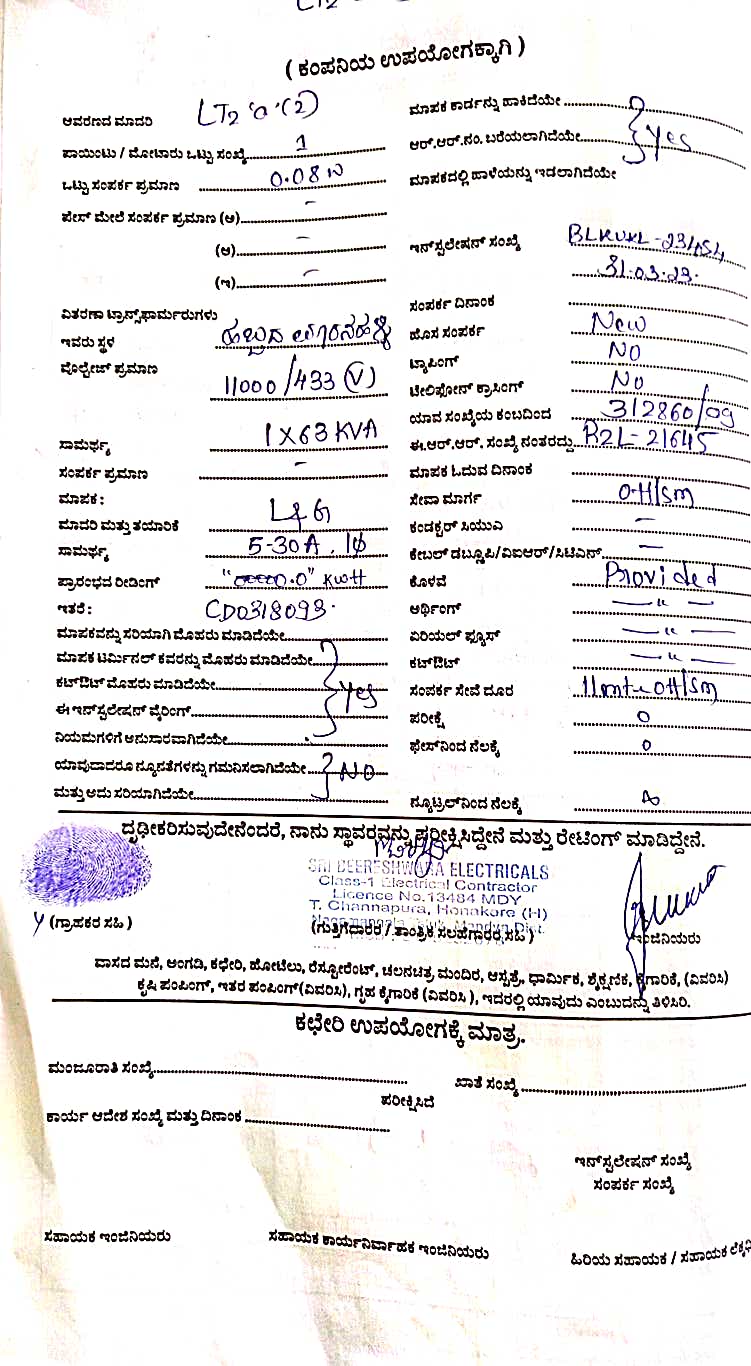 LT2
( ಕಂಪನಿಯ ಉಪಯೋಗಕ್ಕಾಗಿ )
ಆವರಣದ ಮಾದರಿ LT2 'a' (2)
ಪಾಯಿಂಟು / ಮೋಟಾರು ಒಟ್ಟು ಸಂಖ್ಯೆ 1
ಒಟ್ಟು ಸಂಪರ್ಕ ಪ್ರಮಾಣ 0.08
ಪೇಸ್ ಮೇಲೆ ಸಂಪರ್ಕ ಪ್ರಮಾಣ (ಅ) –
(ಆ) –
(ಇ) –
ವಿತರಣಾ ಟ್ರಾನ್ಸ್‌ಫಾರ್ಮರುಗಳು
ಇವರು ಸ್ಥಳ
ವೊಲ್ಟೇಜ್ ಪ್ರಮಾಣ 11000/433 (V)
ಸಾಮರ್ಥ್ಯ 1 X 63 KVA
ಸಂಪರ್ಕ ಪ್ರಮಾಣ –
ಮಾಪಕ :
ಮಾದರಿ ಮತ್ತು ತಯಾರಿಕೆ L & G
ಸಾಮರ್ಥ್ಯ 5-30A, 1ϕ
ಪ್ರಾರಂಭದ ರೀಡಿಂಗ್ "00000.0" KWH
ಇತರೆ : CD0318093.
ಮಾಪಕವನ್ನು ಸರಿಯಾಗಿ ಮೊಹರು ಮಾಡಿದೆಯೇ
ಮಾಪಕ ಟರ್ಮಿನಲ್ ಕವರನ್ನು ಮೊಹರು ಮಾಡಿದೆಯೇ
ಕಟ್‌ಔಟ್ ಮೊಹರು ಮಾಡಿದೆಯೇ Yes
ಈ ಇನ್‌ಸ್ಟಲೇಷನ್ ವೈರಿಂಗ್
ನಿಯಮಗಳಿಗೆ ಅನುಸಾರವಾಗಿದೆಯೇ
ಯಾವುದಾದರೂ ನ್ಯೂನತೆಗಳನ್ನು ಗಮನಿಸಲಾಗಿದೆಯೇ NO
ಮತ್ತು ಅದು ಸರಿಯಾಗಿದೆಯೇ
ಮಾಪಕ ಕಾರ್ಡನ್ನು ಹಾಕಿದೆಯೇ
ಆರ್.ಆರ್.ನಂ. ಬರೆಯಲಾಗಿದೆಯೇ Yes
ಮಾಪಕದಲ್ಲಿ ಹಾಳೆಯನ್ನು ಇಡಲಾಗಿದೆಯೇ
ಇನ್‌ಸ್ಟಲೇಷನ್ ಸಂಖ್ಯೆ BLKUKL-23454
31.03.23.
ಸಂಪರ್ಕ ದಿನಾಂಕ
ಹೊಸ ಸಂಪರ್ಕ New
ಟ್ಯಾಪಿಂಗ್ NO
ಟೆಲಿಫೋನ್ ಕ್ರಾಸಿಂಗ್ No
ಯಾವ ಸಂಖ್ಯೆಯ ಕಂಬದಿಂದ 312860/09
ಈ.ಆರ್.ಆರ್. ಸಂಖ್ಯೆ ನಂತರದ್ದು R2L-21645
ಮಾಪಕ ಓದುವ ದಿನಾಂಕ
ಸೇವಾ ಮಾರ್ಗ O.H/SM
ಕಂಡಕ್ಟರ್ ಸಿಯುವಿ –
ಕೇಬಲ್ ಡಬ್ಲೂಪಿ/ವಿಐಆರ್/ಸಿಟಿಎಸ್ –
ಕೊಳವೆ Provided
ಅರ್ಥಿಂಗ್ — " —
ಏರಿಯಲ್ ಫ್ಯೂಸ್ — " —
ಕಟ್‌ಔಟ್ — " —
ಸಂಪರ್ಕ ಸೇವೆ ದೂರ 11mt-OH/SM
ಪರೀಕ್ಷೆ 0
ಫೇಸ್‌ನಿಂದ ನೆಲಕ್ಕೆ 0
ನ್ಯೂಟ್ರಲ್‌ನಿಂದ ನೆಲಕ್ಕೆ
ದೃಢೀಕರಿಸುವುದೇನೆಂದರೆ, ನಾನು ಸ್ಥಾವರವನ್ನು ಪರೀಕ್ಷಿಸಿದ್ದೇನೆ ಮತ್ತು ರೇಟಿಂಗ್ ಮಾಡಿದ್ದೇನೆ.
SRI BEERESHWARA ELECTRICALS
Class-1 Electrical Contractor
Licence No.13484 MDY
T. Channapura, Honakere (H)
Nagamangala Mandya Dist.
(ಗ್ರಾಹಕರ ಸಹಿ )
(ಗುತ್ತಿಗೆದಾರರ / ತಾಂತ್ರಿಕ ಸಲಹೆಗಾರರ ಸಹಿ )
ಇಂಜಿನಿಯರು
ವಾಸದ ಮನೆ, ಅಂಗಡಿ, ಕಛೇರಿ, ಹೋಟೆಲು, ರೆಸ್ಟೋರೆಂಟ್, ಚಲನಚಿತ್ರ ಮಂದಿರ, ಆಸ್ಪತ್ರೆ, ಧಾರ್ಮಿಕ, ಶೈಕ್ಷಣಿಕ, ಕೈಗಾರಿಕೆ, (ವಿವರಿಸಿ)
ಕೃಷಿ ಪಂಪಿಂಗ್, ಇತರ ಪಂಪಿಂಗ್(ವಿವರಿಸಿ), ಗೃಹ ಕೈಗಾರಿಕೆ (ವಿವರಿಸಿ ), ಇದರಲ್ಲಿ ಯಾವುದು ಎಂಬುದನ್ನು ತಿಳಿಸಿರಿ.
ಕಛೇರಿ ಉಪಯೋಗಕ್ಕೆ ಮಾತ್ರ.
ಮಂಜೂರಾತಿ ಸಂಖ್ಯೆ
ಖಾತೆ ಸಂಖ್ಯೆ
ಪರೀಕ್ಷಿಸಿದೆ
ಕಾರ್ಯ ಆದೇಶ ಸಂಖ್ಯೆ ಮತ್ತು ದಿನಾಂಕ
ಇನ್‌ಸ್ಟಲೇಷನ್ ಸಂಖ್ಯೆ
ಸಂಪರ್ಕ ಸಂಖ್ಯೆ
ಸಹಾಯಕ ಇಂಜಿನಿಯರು
ಸಹಾಯಕ ಕಾರ್ಯನಿರ್ವಾಹಕ ಇಂಜಿನಿಯರು
ಹಿರಿಯ ಸಹಾಯಕ / ಸಹಾಯಕ